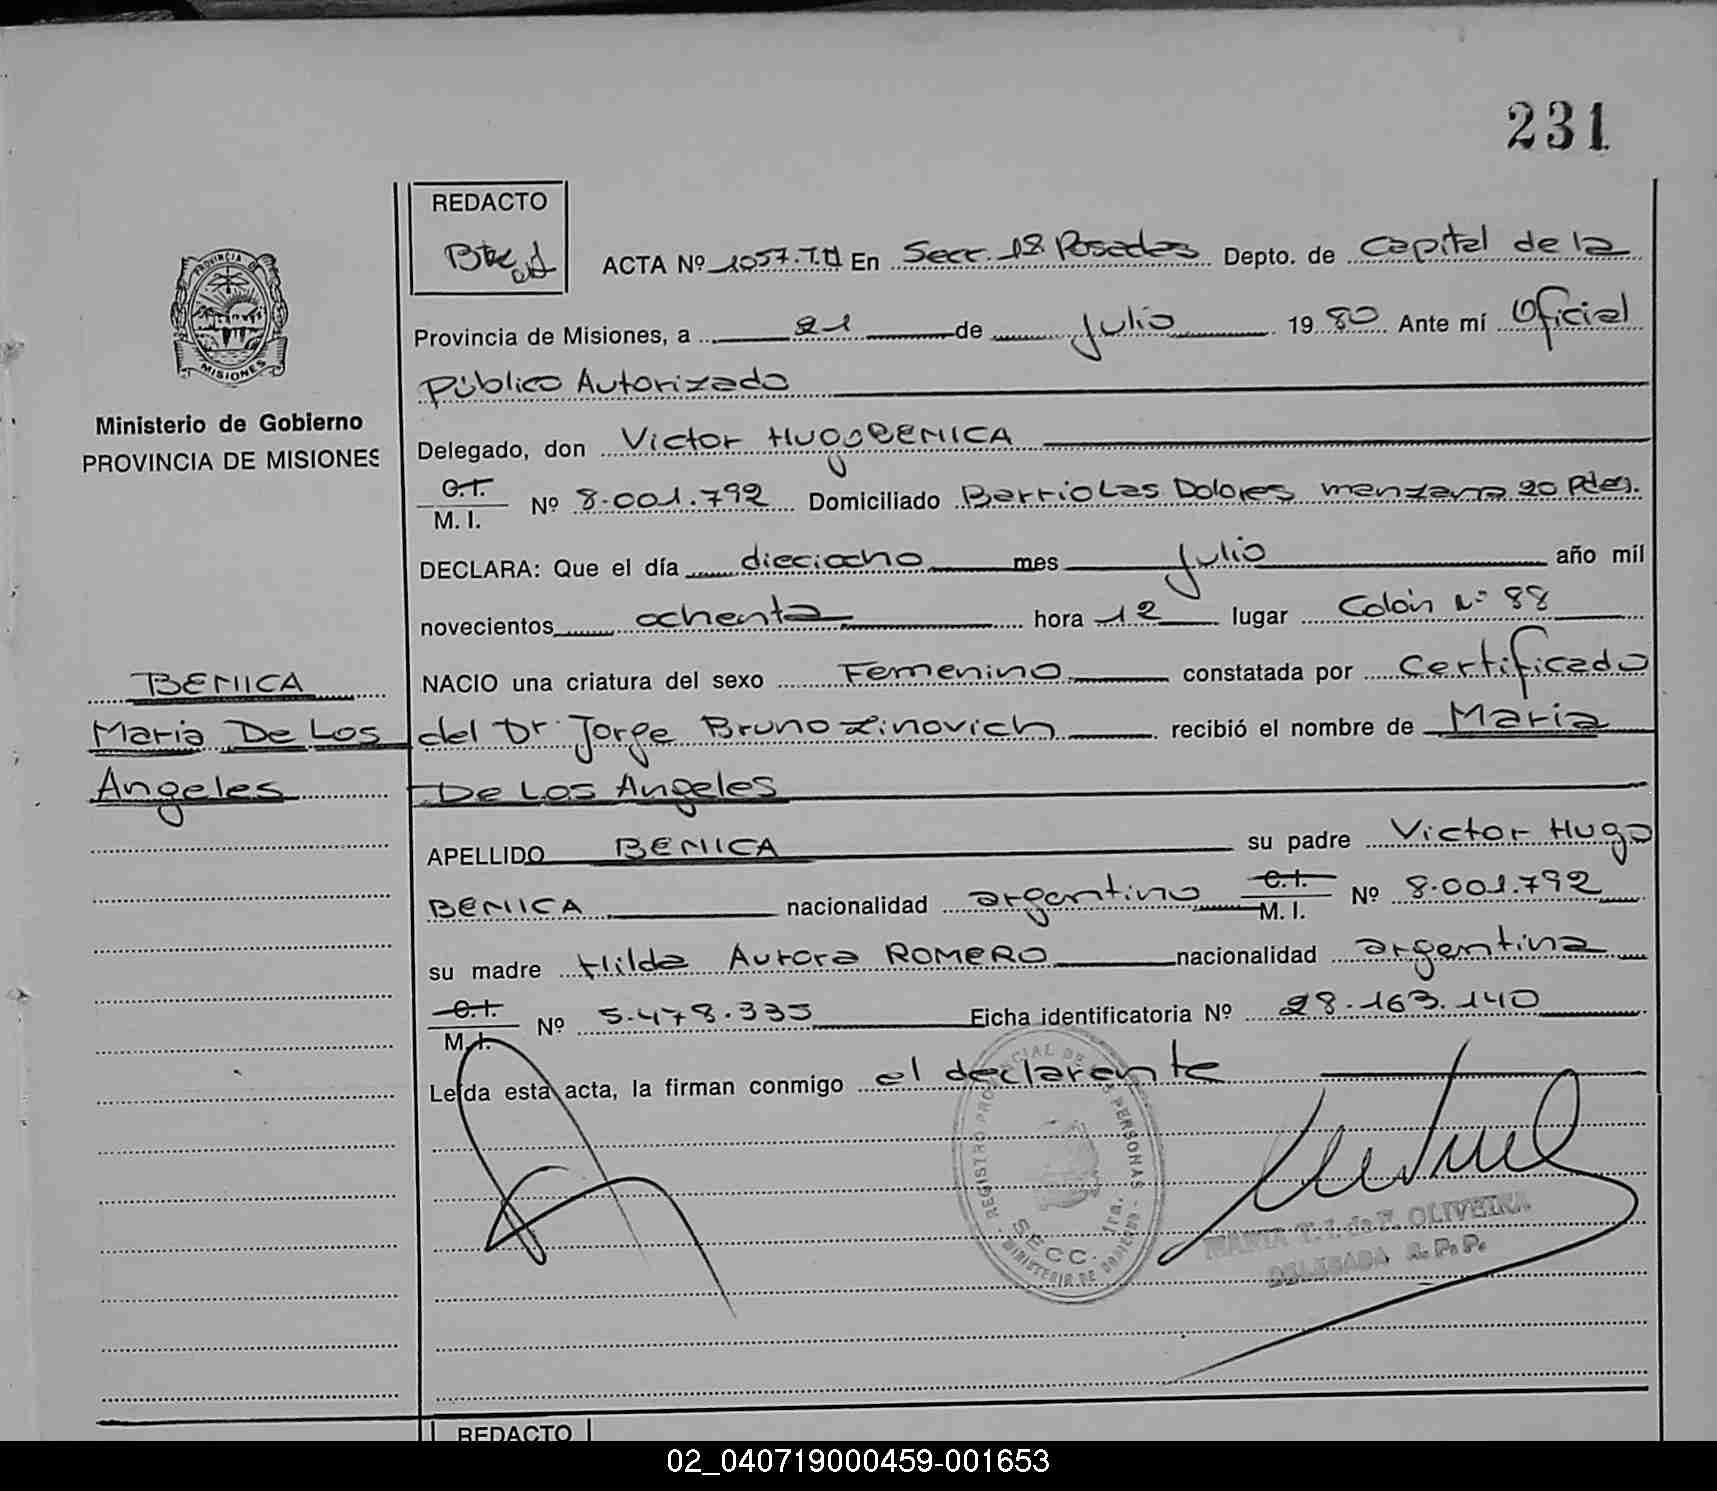 231
REDACTO
ACTA Nº 1057.T.II En Secc. 1ª Posadas Depto. de Capital de la
Provincia de Misiones, a 21 de Julio 1980 Ante mí Oficial
Público Autorizado
Delegado, don Victor Hugo BENICA
C.I.
M. I. Nº 8.001.792 Domiciliado Barrio Las Dolores manzana 20 Pdas.
DECLARA: Que el día dieciocho mes Julio año mil
novecientos ochenta hora 12 lugar Colón Nº 88
NACIO una criatura del sexo Femenino constatada por Certificado
del Dr. Jorge Bruno Zinovich recibió el nombre de Maria
De Los Angeles
APELLIDO BENICA su padre Victor Hugo
BENICA nacionalidad argentino C.I. M. I. Nº 8.001.792
su madre Hilda Aurora ROMERO nacionalidad argentina
C.I.
M.I. Nº 5.478.335 Ficha identificatoria Nº 28.163.140
Leída esta acta, la firman conmigo el declarante
PROVINCIA DE
MISIONES
Ministerio de Gobierno
PROVINCIA DE MISIONES
BENICA
Maria De Los
Angeles
REGISTRO PROVINCIAL DE LAS PERSONAS
SECC. 1ra.
MINISTERIO DE GOBIERNO
MARIA T. I. de F. OLIVEIRA
DELEGADA R. P. P.
REDACTO
02_040719000459-001653